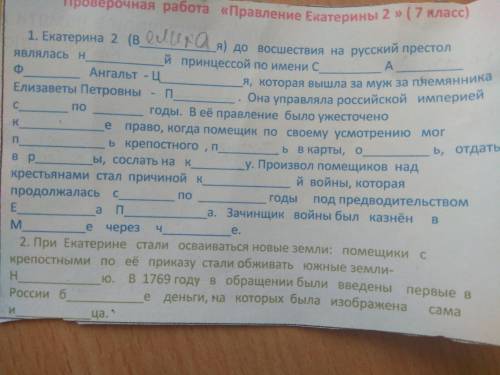 Проверочная работа «Правление Екатерины 2 » ( 7 класс)
1. Екатерина 2 (В елика я) до восшествия на русский престол
являлась н________й принцессой по имени С________ А________
Ф________ Ангальт - Ц________я, которая вышла за муж за племянника
Елизаветы Петровны - П________. Она управляла российской империей
с______ по ______ годы. В её правление было ужесточено
к________е право, когда помещик по своему усмотрению мог
п________ь крепостного , п________ь в карты, о________ь, отдать
в р________ы, сослать на к________у. Произвол помещиков над
крестьянами стал причиной к________й войны, которая
продолжалась с______ по ______годы под предводительством
Е________а П________а. Зачинщик войны был казнён в
М________е через ч________е.
2. При Екатерине стали осваиваться новые земли: помещики с
крепостными по её приказу стали обживать южные земли-
Н________ю. В 1769 году в обращении были введены первые в
России б________е деньги, на которых была изображена сама
и________ца.